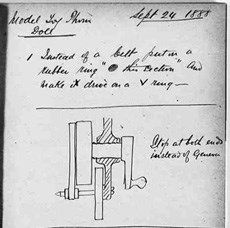 Model Toy Phon Sept 24 1888
Doll
1 Instead of a belt put in a
rubber ring " this section " and
make it drive on a V ring —
Stop at both ends
instead of Geneva